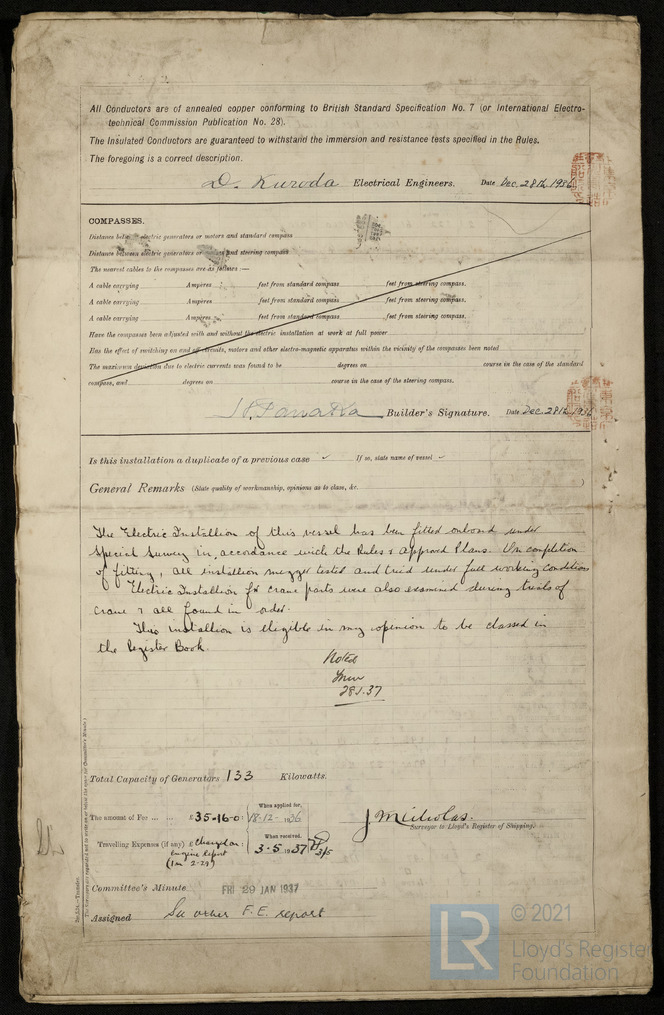 All Conductors are of annealed copper conforming to British Standard Specification No. 7 (or International Electro-
technical Commission Publication No. 28).
The Insulated Conductors are guaranteed to withstand the immersion and resistance tests specified in the Rules.
The foregoing is a correct description.
D. Kuroda Electrical Engineers. Date Dec. 28th, 1936
COMPASSES.
Distance between electric generators or motors and standard compass
Distance between electric generators or motors and steering compass
The nearest cables to the compasses are as follows:—
A cable carrying Ampères feet from standard compass feet from steering compass.
A cable carrying Ampères feet from standard compass feet from steering compass.
A cable carrying Ampères feet from standard compass feet from steering compass.
Have the compasses been adjusted with and without the electric installation at work at full power
Has the effect of switching on and off circuits, motors and other electro-magnetic apparatus within the vicinity of the compasses been noted
The maximum deviation due to electric currents was found to be degrees on course in the case of the standard
compass, and degrees on course in the case of the steering compass.
Builder's Signature. Date Dec. 28th, 1936
Is this installation a duplicate of a previous case ✓ If so, state name of vessel ✓
General Remarks (State quality of workmanship, opinions as to class, &c. )
The Electric Installion of this vessel has been fitted onboard under
Special Survey in accordance with the Rules & Approved Plans. On completion
of fitting, all installion megger tested and tried under full working conditions
Electric Installion for crane parts were also examined during trials of
crane & all found in order.
This installion is eligible in my opinion to be classed in
the Register Book.
Noted
28.1.37
Total Capacity of Generators 133 Kilowatts.
The amount of Fee ... ... £ 35-16-0 : When applied for, 18-12-1936
Travelling Expenses (if any) £ Charged on : When received, 3-5-1937
engine Report
J Nicholas.
Surveyor to Lloyd's Register of Shipping.
Committee's Minute FRI 29 JAN 1937
Assigned See other F.E. report
LR
© 2021
Lloyd's Register
Foundation